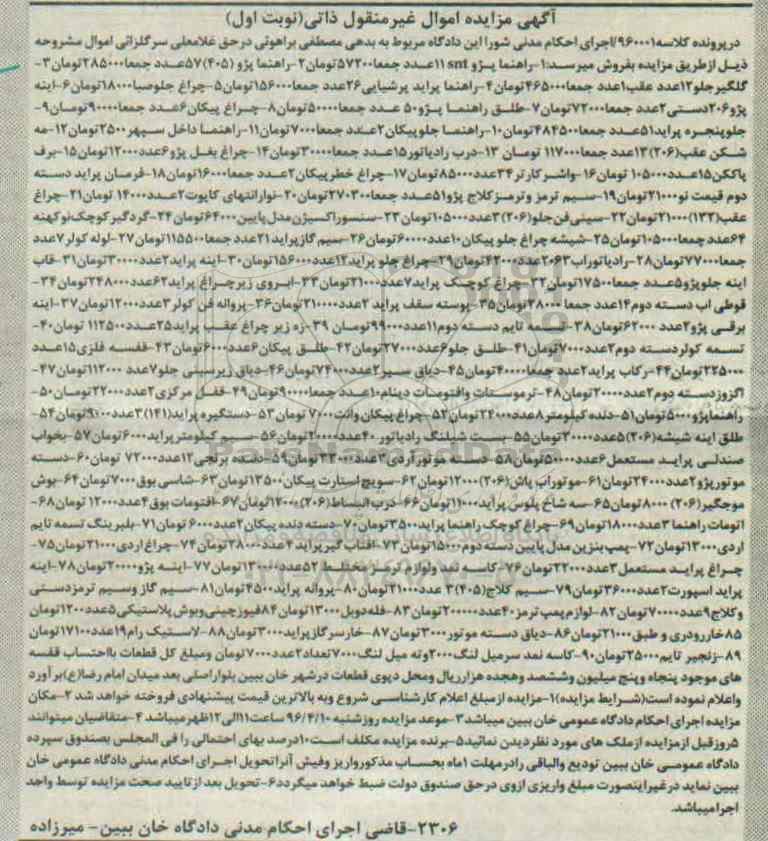 آگهی مزایده اموال غیرمنقول ذاتی(نوبت اول)
درپرونده کلاسه۹۶۰۰۰۱/اجرای احکام مدنی شورا این دادگاه مربوط به بدهی مصطفی براهوئی درحق غلامعلی سرگلزائی اموال مشروحه
ذیل ازطریق مزایده بفروش میرسد:۱-راهنما پژو snt ۱۱عدد جمعا۵۷۲۰۰تومان۲-راهنما پژو (۴۰۵)۵۷عدد جمعا۲۸۵۰۰۰تومان۳-
گلگیرجلو۱۲عدد عقب۱عدد جمعا۴۶۵۰۰۰تومان۴-راهنما پراید پرشیایی۲۶عدد جمعا۱۵۶۰۰۰تومان۵-چراغ جلوصبا۱۸۰۰۰تومان۶-اینه
پژو۲۰۶دستی۲عدد جمعا۷۲۰۰۰تومان۷-طلق راهنما پژو۵۰ عدد جمعا۵۰۰۰۰تومان۸-چراغ پیکان۶عدد جمعا۹۰۰۰۰تومان۹-
جلوپنجره پراید۵۱عدد جمعا۴۸۴۵۰۰تومان۱۰-راهنما جلوپیکان۲عدد جمعا۷۰۰۰تومان۱۱-راهنما داخل سپهر۲۵۰۰تومان۱۲-مه
شکن عقب(۲۰۶)۱۳عدد جمعا۱۱۷۰۰۰ تومان ۱۳-درب رادیاتور۱۵عدد جمعا۳۰۰۰۰تومان۱۴-چراغ بغل پژو۶عدد۱۲۰۰۰تومان۱۵-برف
پاککن۱۵عدد۱۰۵۰۰۰ تومان۱۶-واشرکارتر۳۴عدد۸۵۰۰۰تومان۱۷-چراغ خطرپیکان۲عدد جمعا۱۶۰۰۰تومان۱۸-فرمان پراید دسته
دوم قیمت نو۲۱۰۰۰تومان۱۹-سیم ترمز وترمزکلاج پژو۵۱عدد جمعا۲۷۰۳۰۰تومان۲۰-نوارانتهای کاپوت۲عدد۱۴۰۰۰ تومان۲۱-چراغ
عقب(۱۳۲)۲۱۰۰۰تومان۲۲-سینی فن جلو(۲۰۶)۳عدد۱۰۵۰۰۰تومان۲۳-سنسوراکسیژن مدل پایین۶۴۰۰۰تومان۲۴-گردگیرکوچک نوکهنه
۶۴عدد جمعا۱۰۵۰۰۰تومان۲۵-شیشه چراغ جلو پیکان۱۰عدد۶۰۰۰۰تومان۲۶-سیم گازپراید۲۱عدد جمعا۱۱۵۵۰۰تومان۲۷-لوله کولر۷عدد
جمعا۷۷۰۰۰تومان۲۸-رادیاتوراب۲۰۶۳عدد۴۲۰۰۰تومان۲۹-چراغ جلو پراید۱۲عدد۱۵۶۰۰۰تومان۳۰-اینه پراید۲عدد۳۰۰۰۰تومان۳۱-قاب
اینه جلوپژو۵عدد جمعا۱۷۵۰۰تومان۳۲-چراغ کوچک پراید۷عدد۲۱۰۰۰تومان۳۳-ابروی زیرچراغ پراید۶۲عدد۲۴۸۰۰۰تومان۳۴-
قوطی اب دسته دوم۱۴عدد جمعا ۲۸۰۰۰تومان۳۵-پوسته سقف پراید ۲عدد۲۱۰۰۰۰تومان۳۶-پروانه فن کولر۳عدد۱۲۰۰۰تومان۳۷-اینه
برقی پژو۲عدد ۶۲۰۰۰تومان۳۸-تسمه تایم دسته دوم۱۱عدد۹۹۰۰۰تومان ۳۹-زه زیر چراغ عقب پراید۲۵عدد۱۱۲۵۰۰ تومان۴۰-
تسمه کولردسته دوم۲عدد۷۰۰۰تومان۴۱-طلق جلو۶عدد۲۷۰۰۰تومان۴۲-طلق پیکان۶عدد۶۰۰۰تومان۴۳-قفسه فلزی۱۵عدد
۲۲۵۰۰۰تومان۴۴-رکاب پراید۲عدد جمعا۴۰۰۰۰تومان۴۵-دیاق سپر۲عدد۷۴۰۰۰تومان۴۶-دیاق زیرسینی جلو۷عدد ۱۱۲۰۰۰ تومان۴۷-
اگزوزدسته دوم۲عدد۲۰۰۰۰تومان۴۸-ترموستات وافتومات دینام۱۰عدد جمعا۹۰۰۰۰تومان۴۹-قفل مرکزی۲عدد۲۲۰۰۰تومان۵۰-
راهنماپژو۵۰۰۰تومان۵۱-دنده کیلومتر۸عدد۲۴۰۰۰تومان۵۲-چراغ پیکان وانت۷۰۰۰ تومان۵۳-دستگیره پراید(۱۴۱)۳عدد۹۰۰۰تومان۵۴-
طلق اینه شیشه(۲۰۶)۵عدد۲۰۰۰۰تومان۵۵-بست شیلنگ رادیاتور ۴۰عدد۲۰۰۰۰تومان۵۶-سیم کیلومترپراید۶۰۰۰تومان۵۷-بخواب
صندلی پراید مستعمل۶عدد۵۰۰۰۰تومان۵۸-دسته موتور اردی۳عدد۳۳۰۰۰تومان۵۹-دنده برنجی۱۲عدد۷۲۰۰۰ تومان۶۰-دسته
موتورپژو۲عدد۲۴۰۰۰تومان۶۱-موتوراب پاش(۲۰۶)۱۲۰۰۰تومان۶۲-سویچ استارت پیکان۱۳۵۰۰تومان۶۳-شاسی بوق۷۰۰۰تومان۶۴-بوش
موجگیر(۲۰۶) ۸۰۰۰تومان۶۵-سه شاخ پلوس پراید۱۱۰۰۰تومان۶۶-درب انبساط(۲۰۶)۱۲۰۰۰تومان۶۷-افتومات بوق۴عدد۱۲۰۰۰ تومان۶۸-
اتومات راهنما ۳عدد۱۸۰۰۰تومان۶۹-چراغ کوچک راهنما پراید۳۵۰۰تومان۷۰-دسته دنده پیکان۲عدد۶۰۰۰ تومان۷۱-بلبرینگ تسمه تایم
اردی۱۳۰۰۰تومان۷۲-پمپ بنزین مدل پایین دسته دوم۱۵۰۰۰تومان۷۳-افتاب گیرپراید ۴عدد۳۸۰۰۰تومان۷۴-چراغ اردی۲۱۰۰۰تومان۷۵-
چراغ پراید مستعمل۳عدد۲۲۰۰۰تومان۷۶-کاسه نمد ولوازم ترمز مختلط ۵۲عدد۱۳۰۰۰۰تومان۷۷-اینه پژو۲۰۰۰۰تومان۷۸-اینه
پراید اسپورت۲عدد۳۶۰۰۰تومان۷۹-سیم کلاج(۴۰۵)۳ عدد۲۱۰۰۰تومان۸۰-پروانه پراید۴۵۰۰تومان۸۱-سیم گاز وسیم ترمزدستی
وکلاج۹عدد۷۰۰۰۰تومان۸۲-لوازم پمپ ترمز۴۰عدد۲۰۰۰۰۰تومان۸۳-قله دوبل۱۳۰۰۰تومان۸۴فیوزچینی وبوش پلاستیکی۵عدد۱۲۰۰تومان
۸۵خاررودری و طبق۲۱۰۰۰تومان۸۶-دیاق دسته موتور۳۰۰۰تومان۸۷-خارسرگازپراید۳۰۰۰تومان۸۸-لاستیک رام۱۹عدد۱۷۱۰۰تومان
۸۹-زنجیر تایم۲۵۰۰۰تومان۹۰-کاسه نمد سرمیل لنگ۲۰۰۰وته میل لنگ۷۰۰۰تعداد۲عدد۷۰۰۰تومان ومبلغ کل قطعات بااحتساب قفسه
های موجود پنجاه وپنج میلیون وششصد وهجده هزارریال ومحل دپوی قطعات درشهر خان ببین بلواراصلی بعد میدان امام رضا(ع)برآورد
واعلام نموده است(شرایط مزایده)۱-مزایده ازمبلغ اعلام کارشناسی شروع وبه بالاترین قیمت پیشنهادی فروخته خواهد شد ۲-مکان
مزایده اجرای احکام دادگاه عمومی خان ببین میباشد۳-موعد مزایده روزشنبه ۹۶/۴/۱۰ ساعت۱۱الی۱۲ظهرمیباشد ۴-متقاضیان میتوانند
۵روزقبل ازمزایده ازملک های مورد نظردیدن نمائید۵-برنده مزایده مکلف است۱۰درصد بهای احتمالی را فی المجلس بصندوق سپرده
دادگاه عمومی خان ببین تودیع والباقی رادرمهلت ۱ماه بحساب مذکورواریز وفیش آنراتحویل اجرای احکام مدنی دادگاه عمومی خان
ببین نماید درغیراینصورت مبلغ واریزی ازوی درحق صندوق دولت ضبط خواهد میگردد۶-تحویل بعد ازتایید صحت مزایده توسط واجد
اجرامیباشد.
۲۳۰۶-قاضی اجرای احکام مدنی دادگاه خان ببین- میرزاده